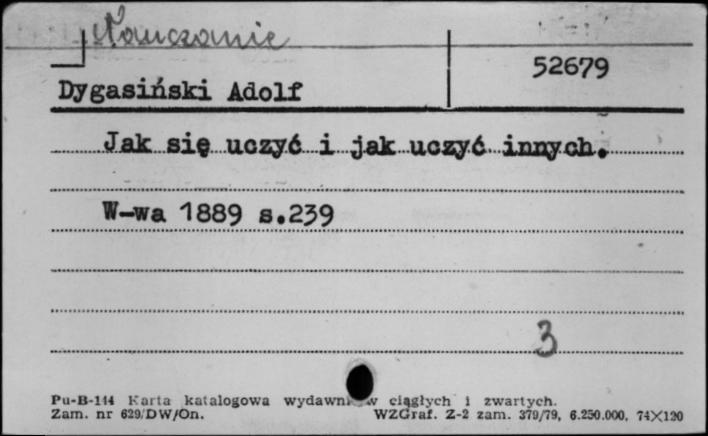 Nauczanie
52679
Dygasiński Adolf
Jak się uczyć i jak uczyć innych.
W-wa 1889 s.239
3
Pu-B-144 Karta katalogowa wydawni w ciągłych i zwartych.
Zam. nr 629/DW/On. WZGraf. Z-2 zam. 379/79, 6.250.000, 74×120